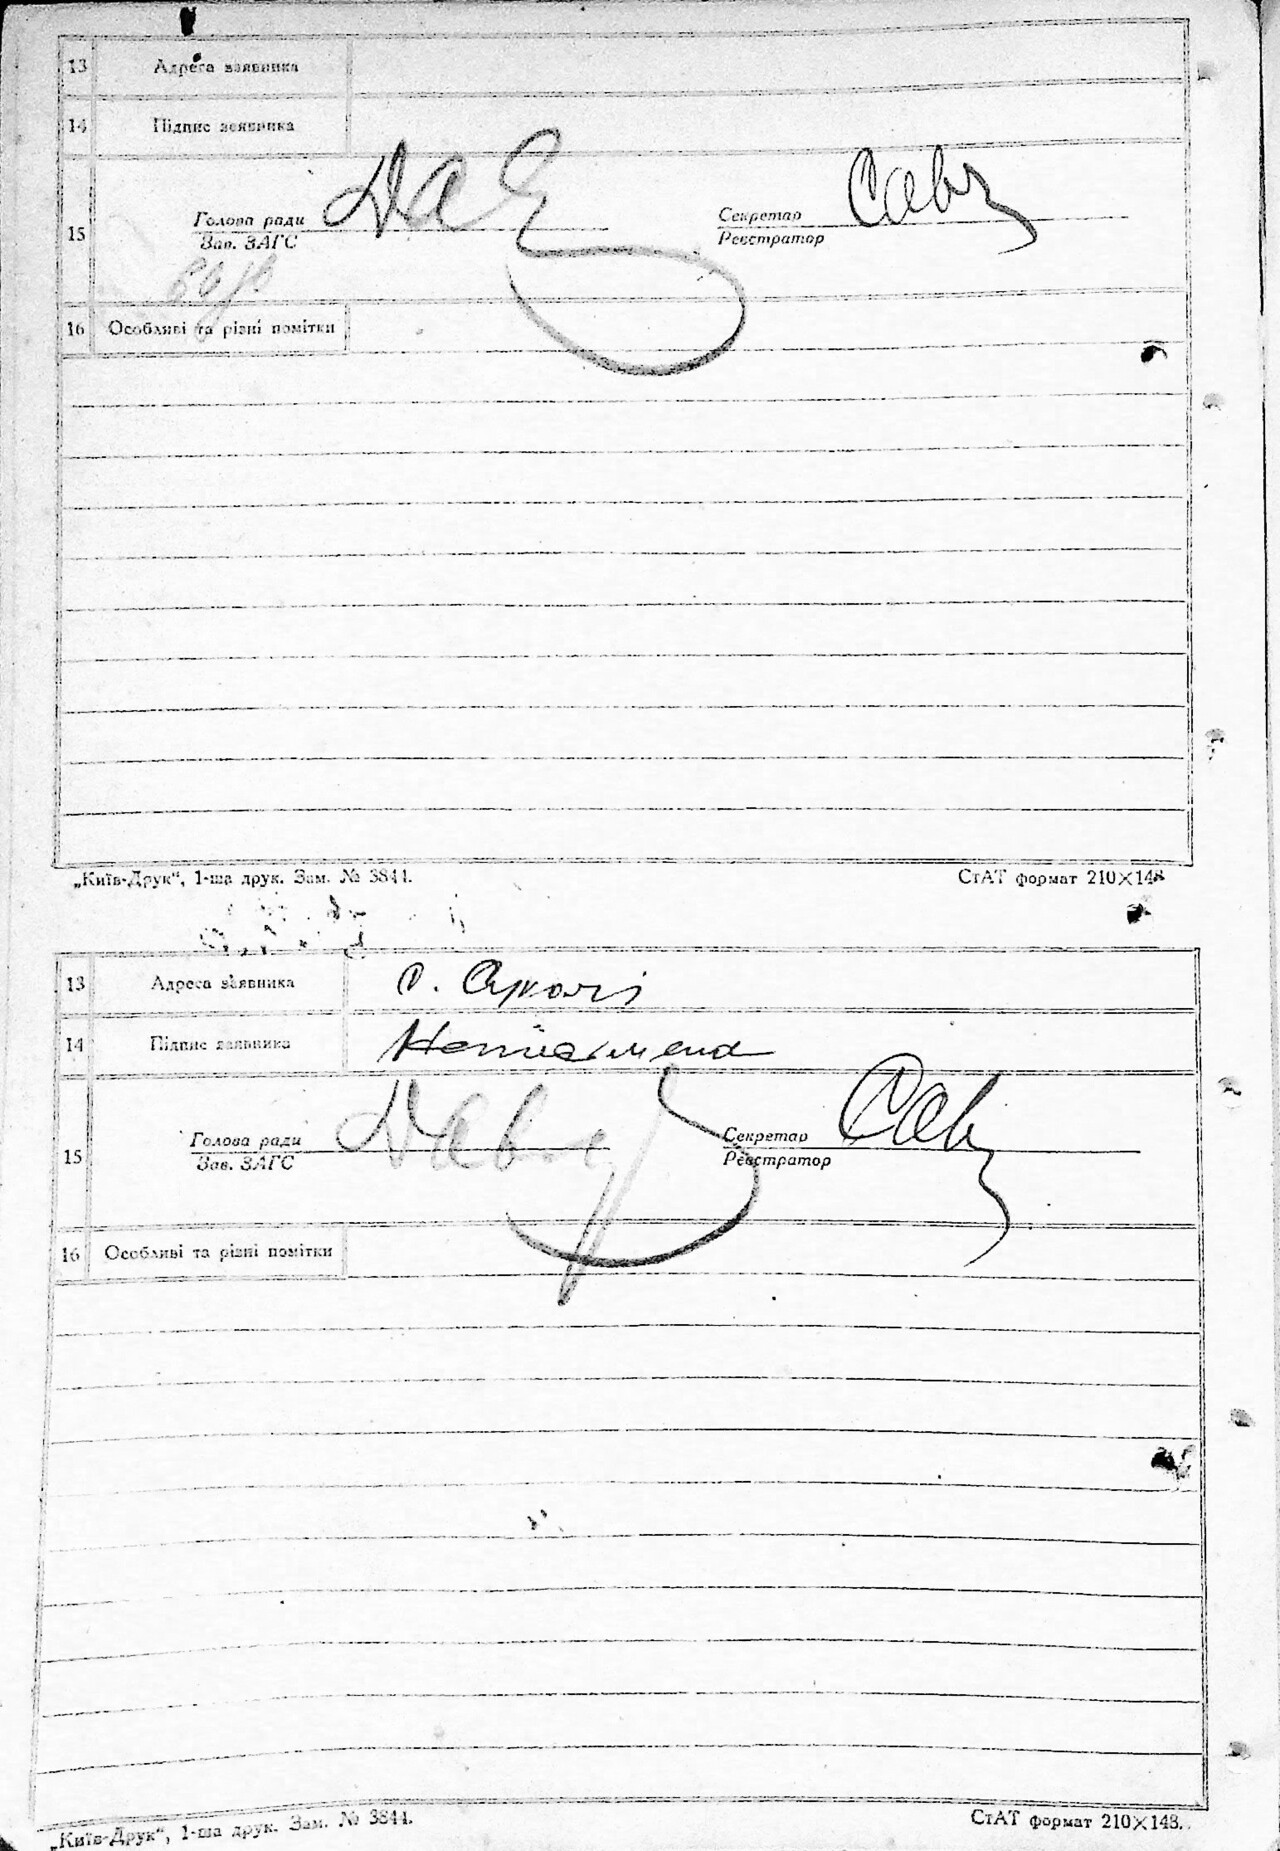 13 Адреса заявника
14 Підпис заявника
15 Голова ради Секретар
Зав. ЗАГС Реєстратор
16 Особливі та різні помітки
„Київ-Друк“, 1-ша друк. Зам. № 3844. СтАТ формат 210×148
13 Адреса заявника с.
14 Підпис заявника
15 Голова ради Секретар
Зав. ЗАГС Реєстратор
16 Особливі та різні помітки
„Київ-Друк“, 1-ша друк. Зам. № 3844. СтАТ формат 210×148.